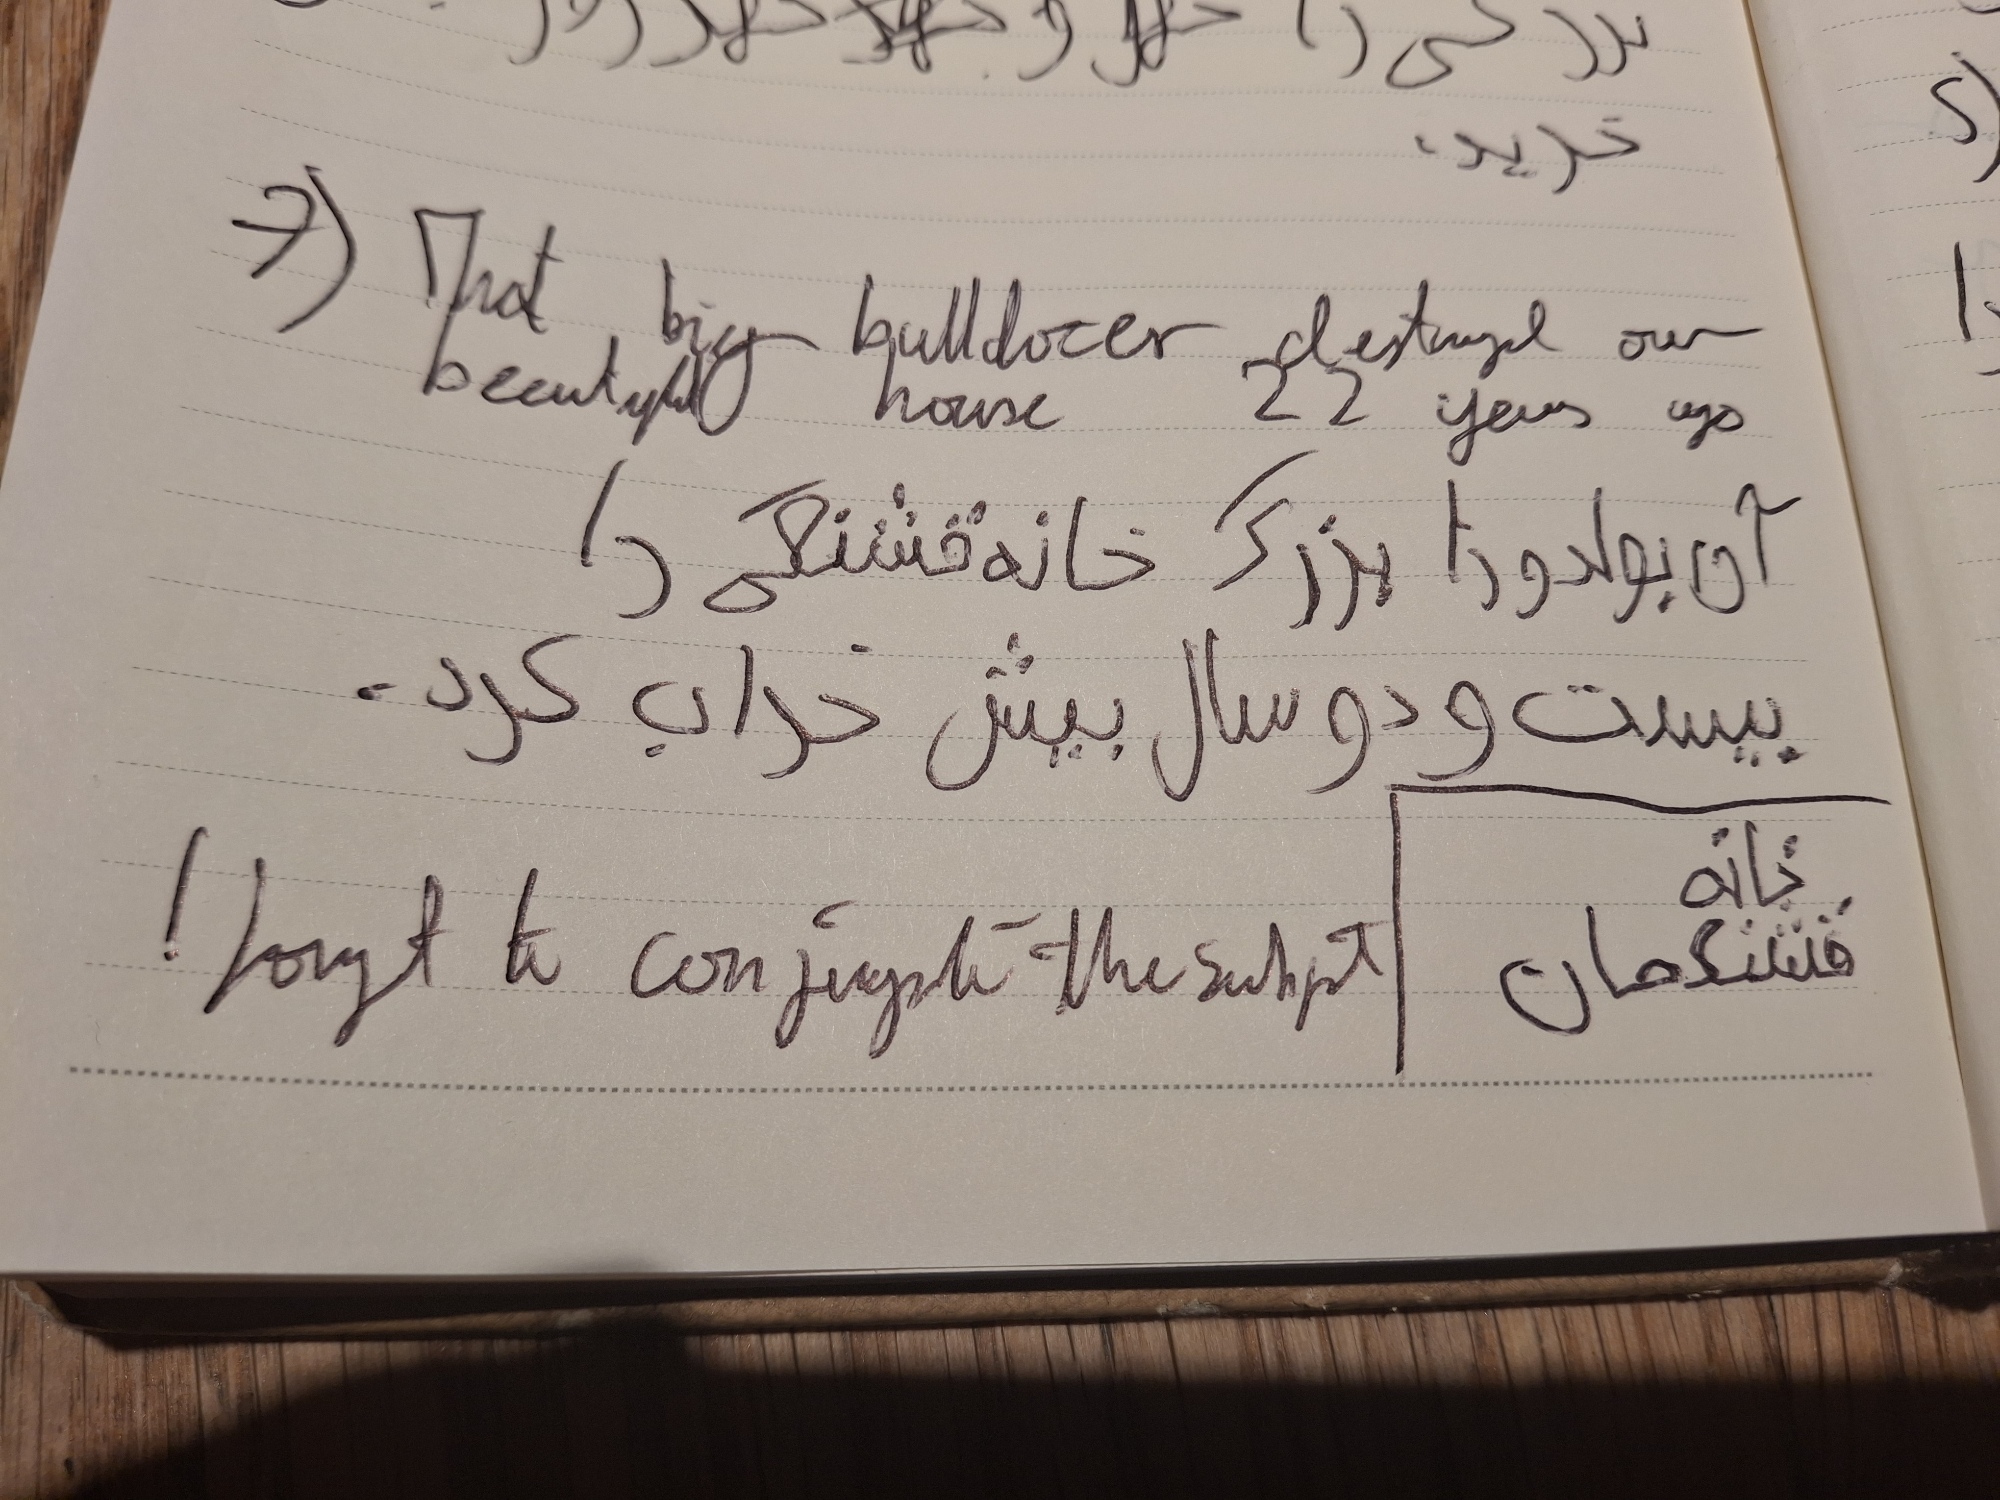 بزرگی را
خرید.
7) That big bulldozer destroyed our
beautiful house 22 years ago
آن بولدوزا بزرگ خانه قشنگی را
بیست و دو سال بیش خراب کرد.
خانه
قشنگمان
! forgot to conjugate the subject